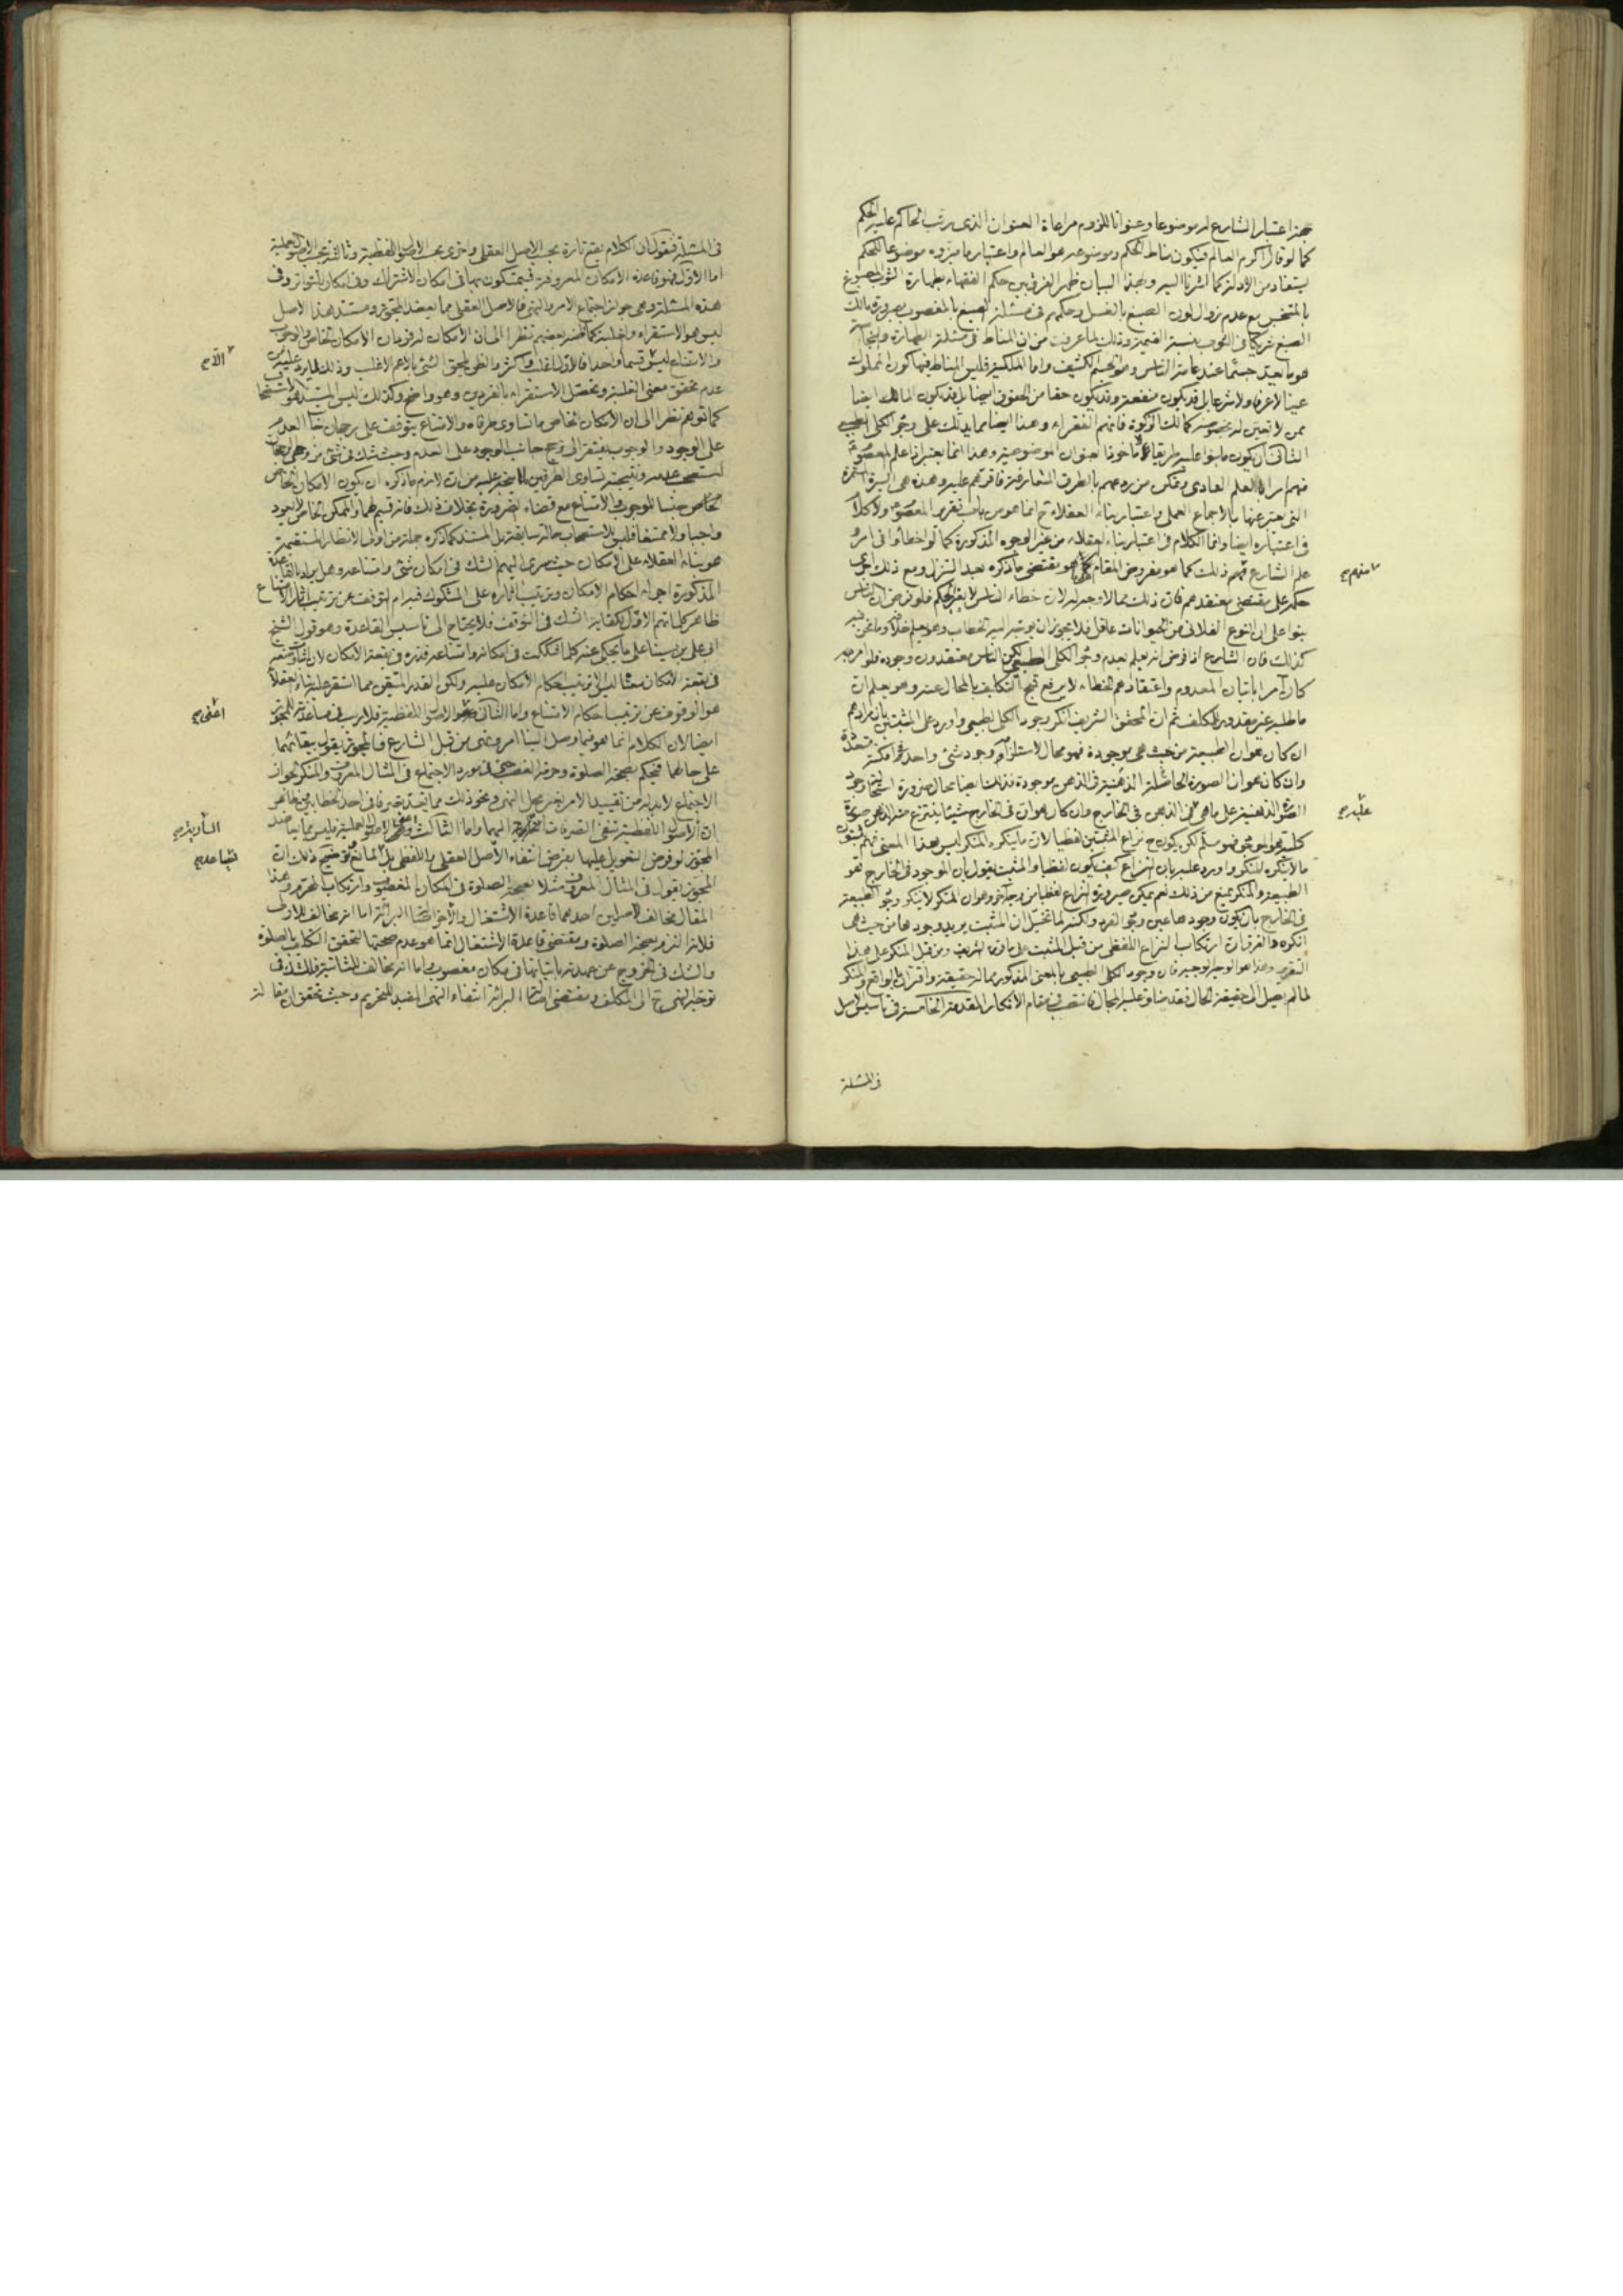 اعتبار الشارع له موضوعا وعنوانا للزوم مراعاة العنوان الذى رتب الحاكم عليه الحكم
كما لو قال اكرم العالم فيكون مناط الحكم وموضوعه هو العالم واعتبار ما ميزوه موضوعا للحكم
يستفاد من الادلة كما اشرنا اليه وبهذا البيان ظهر الفرق بين حكم الفقهاء بطهارة الثوب المصبوغ
بالمتنجس مع عدم زوال لون الصبغ بالغسل وحكمهم فى مسئلة الصبغ بالمغصوب بصيرورة مالك
الصبغ شريكا فى الثوب بنسبة القيمة وذلك لما عرفت من ان المناط فى مسئلة الطهارة والنجاسة
هو ما يعد جسما عند عامة الناس وهو الجسم الكثيف واما الملكية فليس المناط فيها كون المملوك
عينا لا عرفا ولا شرعا بل قد يكون منفعة وقد يكون حقا من الحقوق ايضا بل قد يكون المالك ايضا
ممن لا تعين له بخصوصه كمالك الزكوة فانهم الفقراء وهذا ايضا مما يدلك على وجود الكلى الطبيعى
الثانى ان يكون ما بنوا عليه طريقا لا ماخوذا بعنوان الموضوعية وهذا انما يعتبر اذا علم المعصوم
منهم سرايا العلم العادى وتمكن من ردعهم بالطرق المتعارفة فاقرهم عليه وهذه هى السيرة المستمرة
التى يعبر عنها بالاجماع العملى واعتبار بناء العقلاء ح انما هو من باب تقرير المعصوم ولا كلام
فى اعتباره ايضا وانما الكلام فى اعتبار بناء العقلاء من غير الوجوه المذكورة كما لو اخطأوا فى امر و
علم الشارع ذلك كما هو مفروض المقام هو مقتضى ما ذكره بعد التنزل ومع ذلك اجرى
حكمه على مقتضى معتقدهم فان ذلك مما لا وجه له لان خطاء الناس لا يغير الحكم فلو فرض ان الناس
بنوا على ان النوع الفلانى من الحيوانات عاقل فلا يجوز ان يوجه اليه الخطاب وهو يعلم خلافه وما نحن فيه
كذلك فان الشارع اذا فرض انه يعلم بعدم وجود الكلى الطبيعى لكن الناس يعتقدون وجوده فلو امر به
كان آمرا باتيان المعدوم واعتقادهم الخطاء لا يرفع قبح التكليف بالمحال عنه وهو يعلم ان
ما طلبه غير مقدور للمكلف ثم ان المحقق الشريف انكر وجود الكلى الطبيعى واورد على المثبتين بان مرادهم
ان كان هو ان الطبيعة من حيث هى موجودة فهو محال لاستلزامه وجود شئ واحد فى امكنة متعددة
وان كان هو ان الصورة الحاصلة الذهنية فى الذهن موجودة فذلك ايضا محال ضرورة استحالة وجود
الصور الذهنية على ما هى فى الذهن فى الخارج وان كان هو ان فى الخارج شيئا ينتزع منه الذهن صورة
كلية فهو مسلم لكن يكون ح نزاع المثبتين لفظيا لان ما ينكره المنكر ليس بهذا المعنى
ما لا ينكره المنكر واورد عليه بان النزاع كيف يكون لفظيا والمثبت يقول بان الموجود فى الخارج هو
الطبيعة والمنكر يمنع من ذلك نعم يمكن صيرورة النزاع لفظيا من وجه آخر وهو ان المنكر لا ينكر وجود الطبيعة
فى الخارج بان يكون وجودها عين وجود الفرد ولكنه لما تخيل ان المثبت يريد وجودها من حيث هى
انكره والفرق ان ارتكاب النزاع اللفظى من قبل المثبت على ما قرره الشريف ومن قبل المنكر على هذا
التقرير وهذا هو الوجه الوجيه فان وجود الكلى الطبيعى بالمعنى المذكور مما له حقيقة واقرار بالواقع والمنكر
لما لم يصل الى حقيقة الحال فقد ضاق عليه المجال فانتصب فى مقام الانكار المقدمة الخامسة فى تاسيس الاصل
فى المسئلة
منهم صح
عليه صح
فى المسئلة فنقول ان الكلام يقع تارة بحسب الاصل العقلى واخرى بحسب الاصول اللفظية وثالثة بحسب الاصول العملية
اما الاول فهو قاعدة الامكان المعروفة فيتمسكون بها فى امكان الاشتراك وفى امكان التواتر وفى
هذه المسئلة وهى جواز اجتماع الامر والنهى فالاصل العقلى مما يعضد المجوز ومستند هذا الاصل
ليس هو الاستقراء والغلبة كما ظنه بعضهم نظرا الى ان الامكان له فردان الامكان الخاص والوجوب
والامتناع ليس قسما واحدا فالاول اغلب واكثر والظن يلحق الشئ بالاعم الاغلب وذلك لما يرد عليه من
عدم تحقق معنى الغلبة وتحصل الاستقراء بالفردين وهو واضح وكذلك ليس المستند هو الاستصحاب
كما توهم نظرا الى ان الامكان الخاص ما تساوى طرفاه والامتناع يتوقف على رجحان جانب العدم
على الوجود والوجوب يفتقر الى رجحان جانب الوجود على العدم وحيث شك فى شئ من وجهى الرجحان
استصحب عدمه ونتيجته تساوى الطرفين لما يتجه عليه من ان لازم ما ذكره ان يكون الامكان الخاص
جنسا للوجوب والامتناع مع قضاء الضرورة بخلاف ذلك فانه قسيم لهما والممكن الخاص لا يعود
واجبا ولا ممتنعا فليس للاستصحاب حالة سابقة بل المستند كما ذكره جملة من اولى الانظار المستقيمة
هو بناء العقلاء على الامكان حيث سرى اليهم الشك فى امكان شئ وامتناعه وهل يراد بالقاعدة
المذكورة اجراء احكام الامكان وترتيب آثاره على المشكوك فيه ام التوقف عن ترتيب آثار الامتناع
ظاهر كلماتهم الاول لكفاية الشك فى التوقف فلا يحتاج الى تاسيس القاعدة وهو قول الشيخ
ابى على بن سينا على ما يحكى عنه كلما شككت فى امكانه وامتناعه فذره فى بقعة الامكان
فى بقعة الامكان معنا ليس ترتيب احكام الامكان عليه ولكن القدر المتيقن مما استقر عليه بناء العقلاء
هو الوقوف عن ترتيب احكام الامتناع واما الثانى الاصول اللفظية فلا ريب فى مساعدته للمجوز
ايضا لان الكلام انما هو فيما وصل الينا امر ونهى من قبل الشارع فالمجوز يقول ببقائهما
على حالهما فيحكم بصحة الصلوة وحرمة الغصب فى مورد الاجتماع فى المثال المعروف والمنكر لجواز
الاجتماع لابد له من تقييد الامر بغير محل النهى ونحو ذلك مما يتحقق تصرفا فى احد الخطابين
ان الاصول اللفظية تنفى التصرفات المتطرقة اليهما واما الثالث الاصول العملية فليس مما يعاضد
المجوز لو فرض التعويل عليها بفرض انتفاء الاصل العقلى واللفظى بل المانع توضيح ذلك ان
المجوز يقول فى المثال المعروف مثلا بصحة الصلوة فى المكان المغصوب وارتكاب المحرم وهذا
المقال مخالف لاصلين احدهما قاعدة الاشتغال والآخر اصالة البرائة اما انه مخالف للاول
فلانه التزم بصحة الصلوة ومقتضى قاعدة الاشتغال انما هو عدم صحتها لتحقق التكليف بالصلوة
والشك فى الخروج عن عهدته باتيانها فى مكان مغصوب واما انه مخالف للثانية فللشك فى
توجه النهى ح الى المكلف ومقتضى اصالة البرائة انتفاء النهى المفيد للتحريم وحيث تحقق ان مقالته
اعنى صح